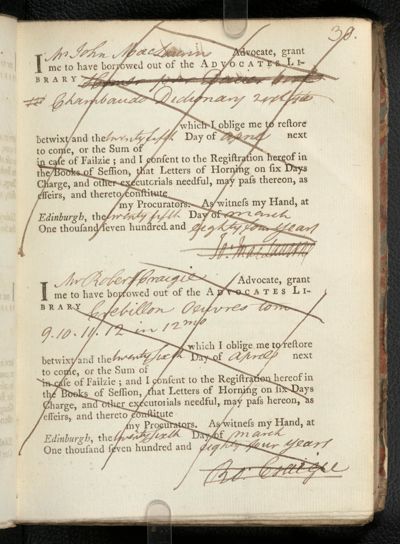 38.
I Mr John MacLaurin Advocate, grant
me to have borrowed out of the ADVOCATES LI-
BRARY
Chambauds Dictionary
which I oblige me to restore
betwixt and the twenty fifth Day of april next
to come, or the Sum of
in case of Failzie ; and I consent to the Registration hereof in
the Books of Session, that Letters of Horning on six Days
Charge, and other executorials needful, may pass thereon, as
effeirs, and thereto constitute
my Procurators. As witness my Hand, at
Edinburgh, the twenty fifth Day of march
One thousand seven hundred and eighty four years
Jo. MacLaurin
I Mr Robert Craigie Advocate, grant
me to have borrowed out of the ADVOCATES LI-
BRARY Crebillon Oeuvres tom
9. 10. 11. 12 in 12mo
which I oblige me to restore
betwixt and the twenty sixth Day of april next
to come, or the Sum of
in case of Failzie ; and I consent to the Registration hereof in
the Books of Session, that Letters of Horning on six Days
Charge, and other executorials needful, may pass hereon, as
effeirs, and thereto constitute
my Procurators. As witness my Hand, at
Edinburgh, the twenty sixth Day of march
One thousand seven hundred and eighty four years
Ro. Craigie